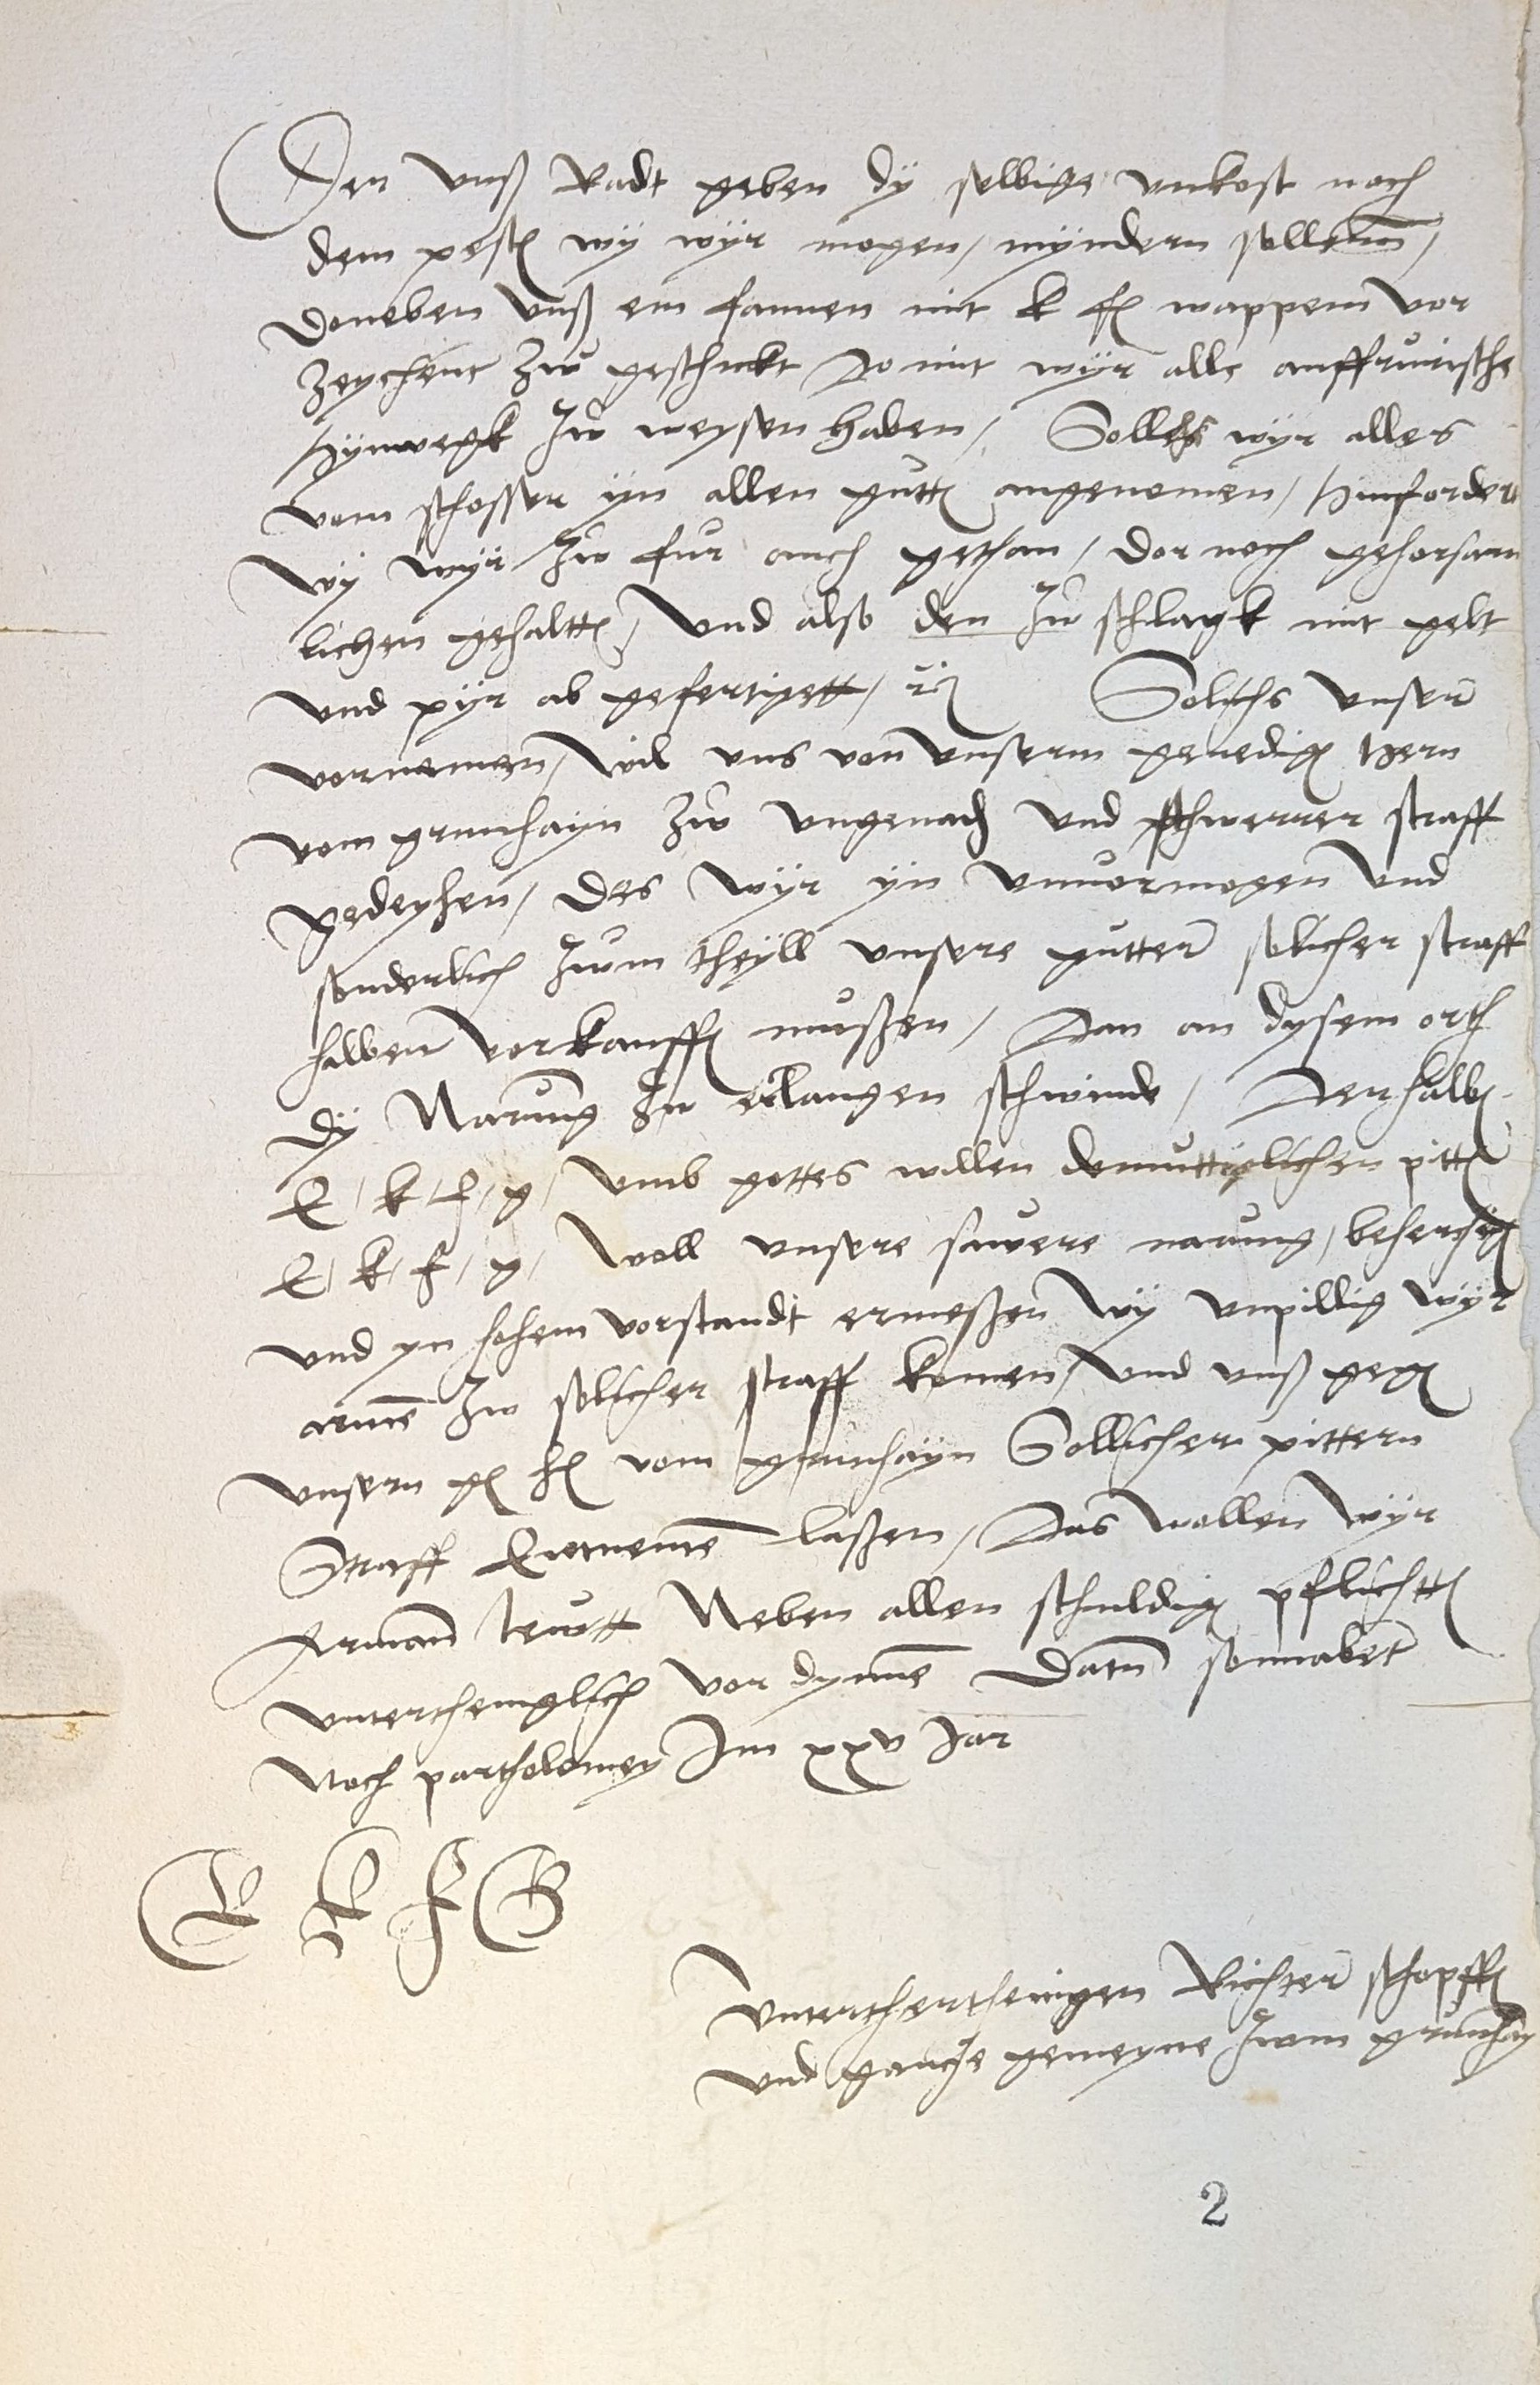 Der unß Radt geben dy selbige unkost noch
dem pestn wy wyr mogen / myndern sollenn /
doneben unß ein fannen mit k f wappenn vor
zeychent zw geschickt Domit wyr alle auffrurische
hynwegk zw weysen haben / Sollchs wyr alles
vom schosser yn allen gutten angenomen / hinforder
wy wyr zw fur auch gethan / dor noch gehorsam
lichen gehaltten / und also den zu schlagk mit gelt
und pyr ab gefertigett / rc Solichs unser
vornemen / wil uns von unserm genedign hern
vom grunhayn zw ungenad und schwerer straff
gedeyhen / des wyr yn unvormogen und
sonderlich zwm theyll unsere gutter solicher straff
halben vorkauffn mußen / Dan an dysem orth
dy Narung zu erlangen schwinde / Derhalbn
E / k / f / g / umb gottes willen demuttiglichen pittn
E / k / f / g / woll unsere sawere narung / behertzign
und yn hohem vorstandt ermeßen wy unpillig wyr
armen zw solicher straff komen / und unß gegn
unsern gn hn vom grunhayn Sollicher pittern
Straff Entnemen laßen / Das wollen wyr
Arman lewtt Neben allen schuldign pflichttn
untertheniglich vor dynne Datum sonnabet
Noch partholomey Im xxv Jar
E K F G
Unterthertheinigen Richter schopffn
und gantze gemeyne zwm grunhay
2